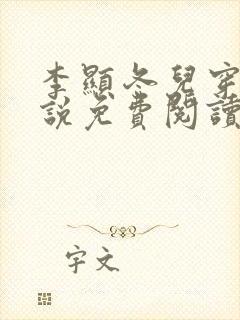 李顯冬兒穿
說免費閱讀
字文